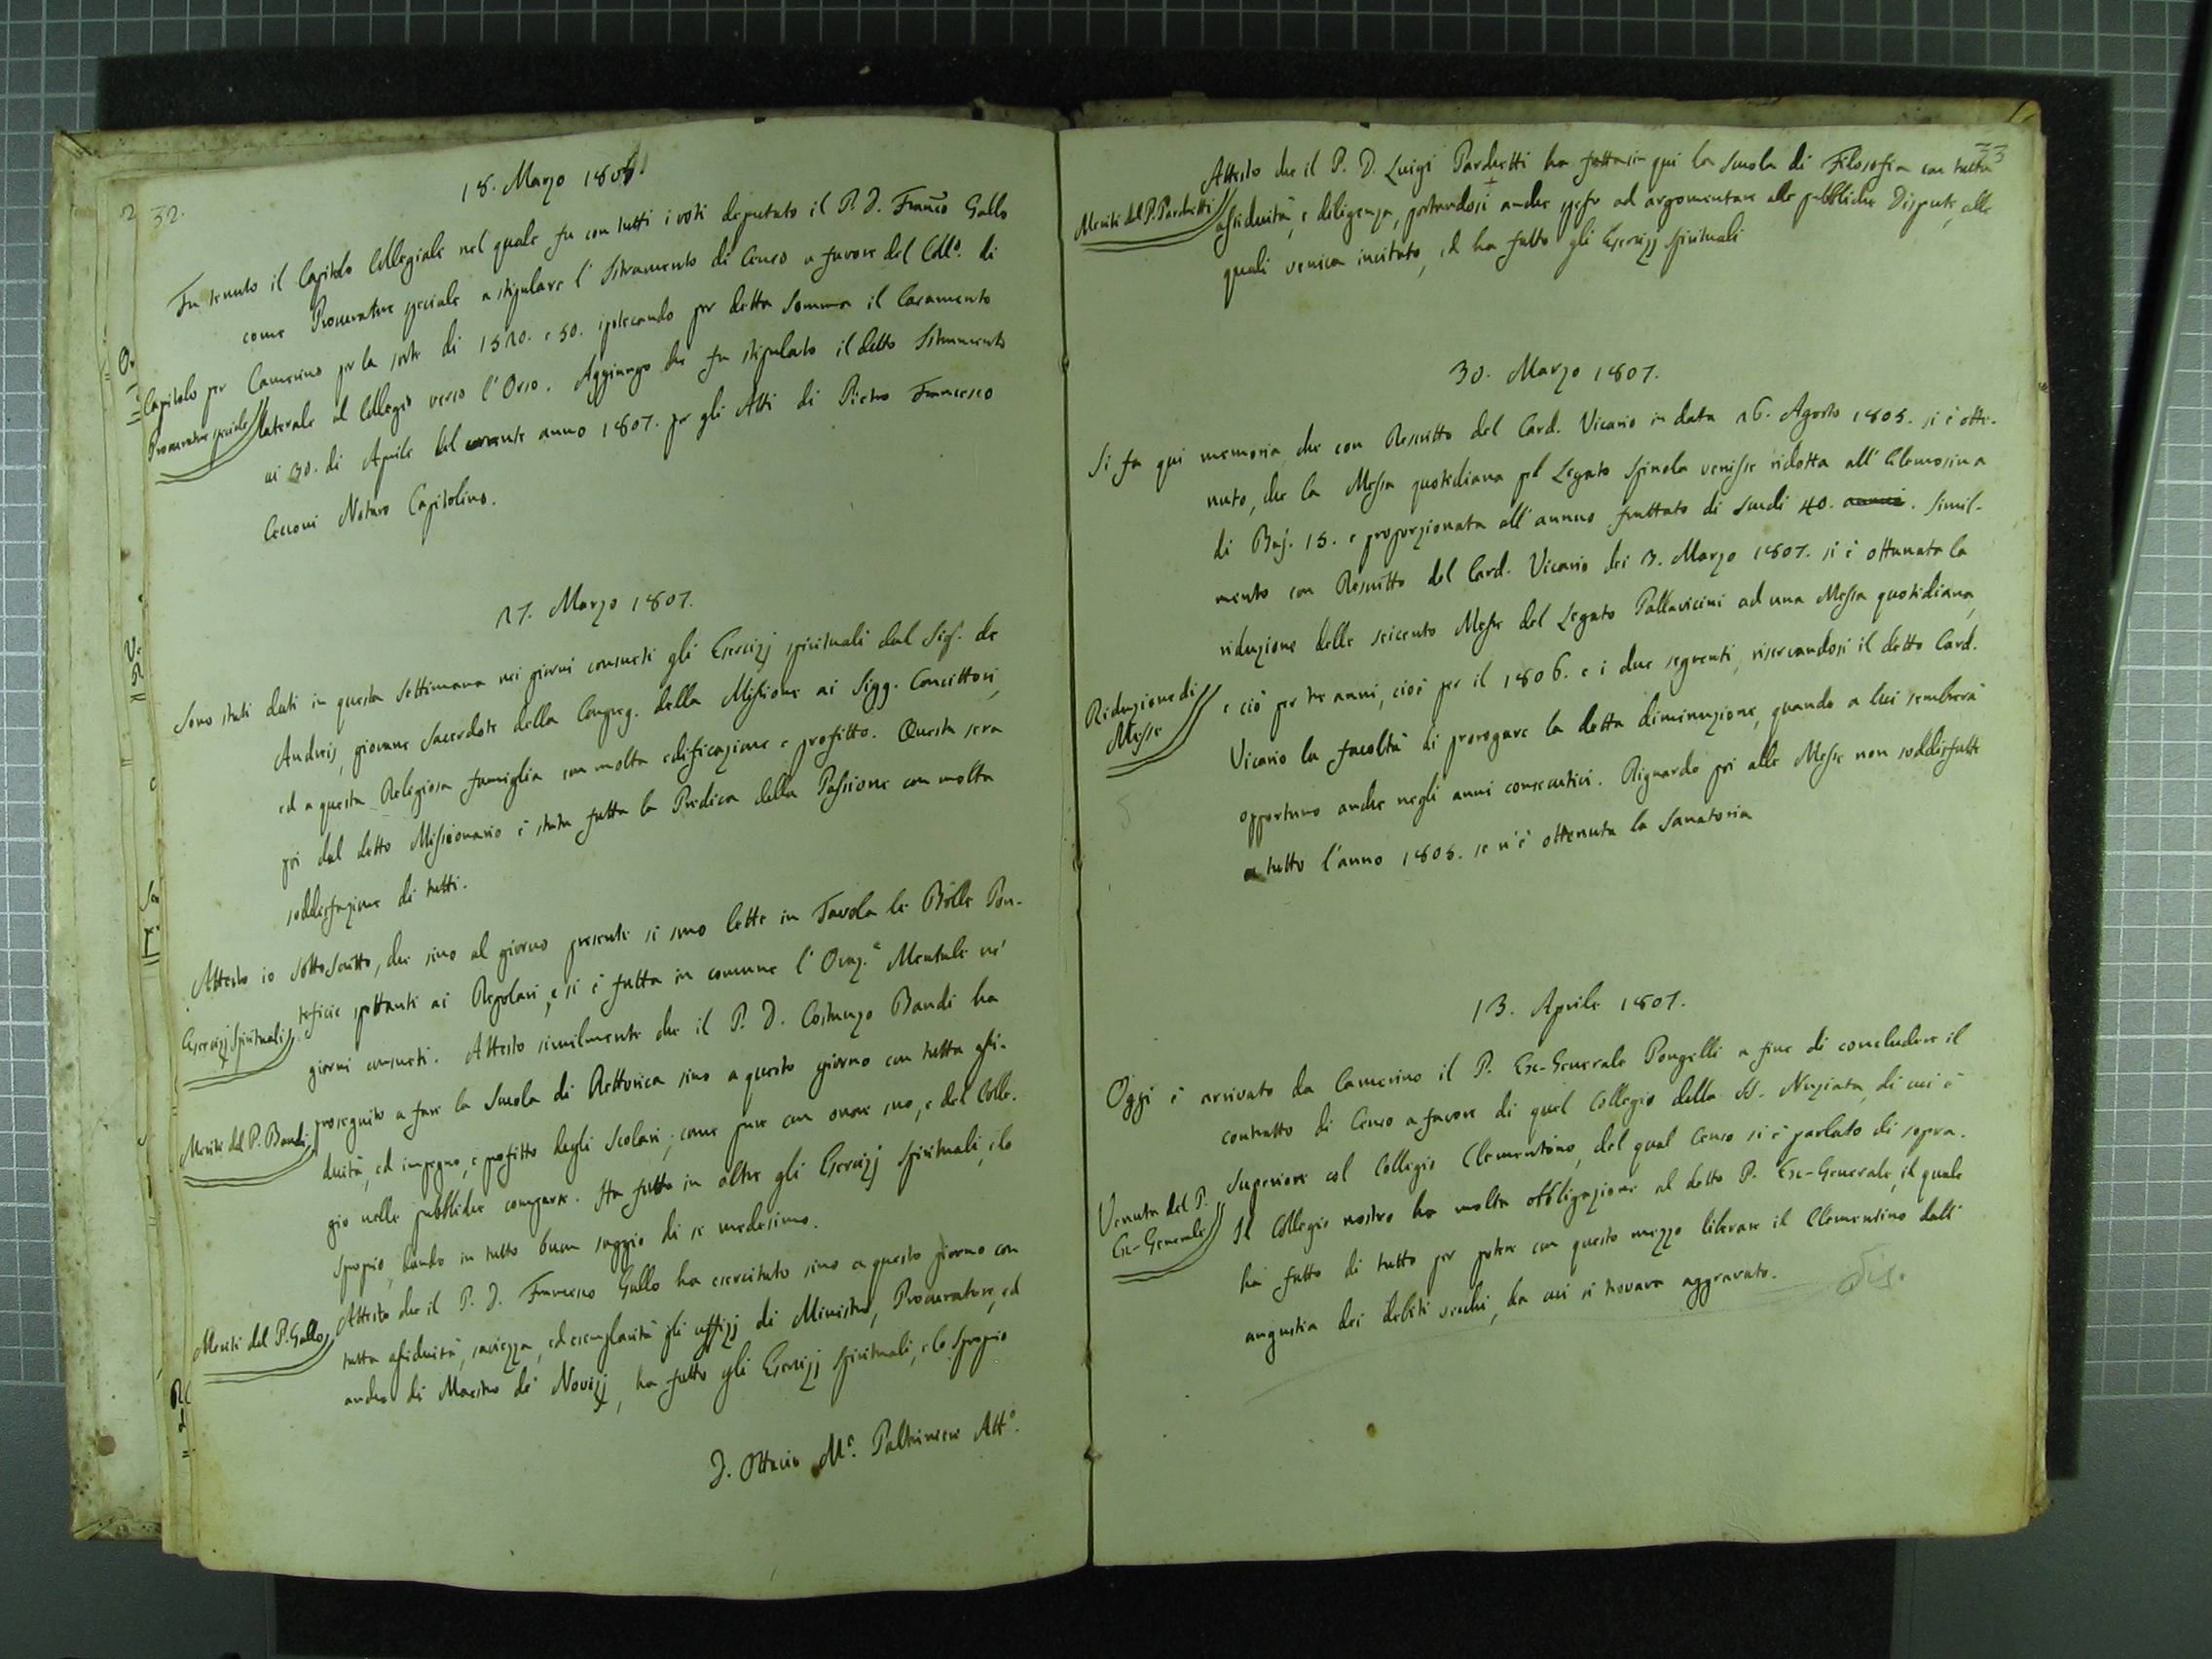 32.
18. Marzo 1807
Fu tenuto il Capitolo Collegiale nel quale fu con tutti i voti deputato il P. D. Franco Gallo
come Procuratore speciale a stipulare l'Istrumento di Censo a favore del Coll.º di
Capitolo per
Procuratore speciale
Camerino per la sorte di 1520. e 50. ipotecando per detta somma il Casamento
laterale al Collegio verso l'Orso. Aggiungo che fu stipulato il detto Istrumento
ai 30. di Aprile del corrente anno 1807. per gli Atti di Pietro Francesco
Cecconi Notaro Capitolino.
27. Marzo 1807.
Sono stati dati in questa Settimana nei giorni consueti gli Esercizj spirituali dal Sig. de
Andreis, giovane Sacerdote della Congreg. della Missione ai Sigg. Convittori,
ed a questa Religiosa famiglia con molta edificazione e profitto. Questa sera
poi dal detto Missionario è stata fatta la Predica della Passione con molta
soddisfazione di tutti.
Attesto io sottoscritto, che sino al giorno presente si sono lette in Tavola le Bolle Pon-
tificie spettanti ai Regolari, e si è fatta in comune l'Oraz.e Mentale ne'
Esercizj Spirituali
giorni consueti. Attesto similmente che il P. D. Costanzo Bandi ha
proseguito a fare la Scuola di Rettorica sino a questo giorno con tutta assi-
Meriti del P. Bandi
duità, ed impegno, e profitto degli Scolari; come pure con onore suo, e del Colle-
gio nelle pubbliche comparse. Ha fatto in oltre gli Esercizj Spirituali, e lo
Spropio, dando in tutto buon saggio di se medesimo.
Attesto che il P. D. Francesco Gallo ha esercitato sino a questo giorno con
Meriti del P. Gallo
tutta assiduità, saviezza, ed esemplarità gli uffizj di Ministro, Procuratore, ed
anche di Maestro de' Novizj, ha fatto gli Esercizj Spirituali, e lo Spropio
D. Ottavio M.ª Paltrinieri Att.º
33
Attesto che il P. D. Luigi Parchetti ha fatta sin qui la Scuola di Filosofia con tutta
Meriti del P. Parchetti
assiduità, e diligenza, portandosi anche spesso ad argomentare alle pubbliche Dispute, alle
quali veniva invitato, ed ha fatto gli Esercizj Spirituali
30. Marzo 1807.
Si fa qui memoria, che con Rescritto del Card. Vicario in data 26. Agosto 1805. si è otte-
nuto, che la Messa quotidiana pel Legato Spinola venisse ridotta all'Elemosina
di Baj. 15. e proporzionata all'annuo fruttato di scudi 40. annui. Simil-
mente con Rescritto del Card. Vicario dei 3. Marzo 1807. si è ottenuta la
riduzione delle seicento Messe del Legato Pallavicini ad una Messa quotidiana,
Riduzione di
Messe
e ciò per tre anni, cioè per il 1806. e i due seguenti, riservandosi il detto Card.
Vicario la facoltà di prorogare la detta diminuzione, quando a lui sembrerà
opportuno anche negli anni consecutivi. Riguardo poi alle Messe non soddisfatte
a tutto l'anno 1805. se n'è ottenuta la Sanatoria
13. Aprile 1807.
Oggi è arrivato da Camerino il P. Ex-Generale Pongelli a fine di concludere il
contratto di Censo a favore di quel Collegio della SS. Nuziata, di cui è
Superiore col Collegio Clementino, del qual Censo si è parlato di sopra.
Venuta del P.
Ex-Generale
Il Collegio nostro ha molta obbligazione al detto P. Ex-Generale, il quale
ha fatto di tutto per potere con questo mezzo liberare il Clementino dall'
angustia dei debiti vecchi, da cui si trovava aggravato.